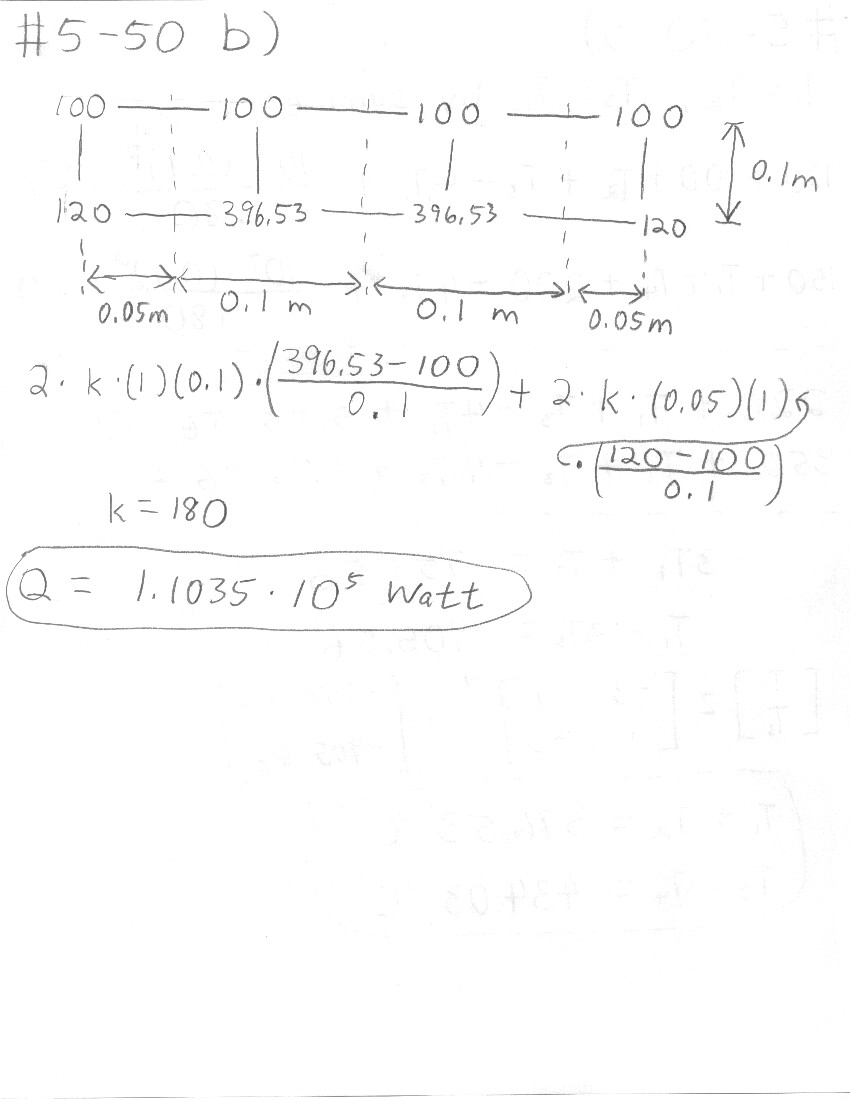 #5-50 b)
100 100 100 100
0.1m
120 396.53 396.53 120
0.05m 0.1 m 0.1 m 0.05m
2 · k · (1)(0.1) · ((396.53 - 100)/0.1) + 2 · k · (0.05)(1)
· ((120 - 100)/0.1)
k = 180
Q = 1.1035 · 10⁵ Watt